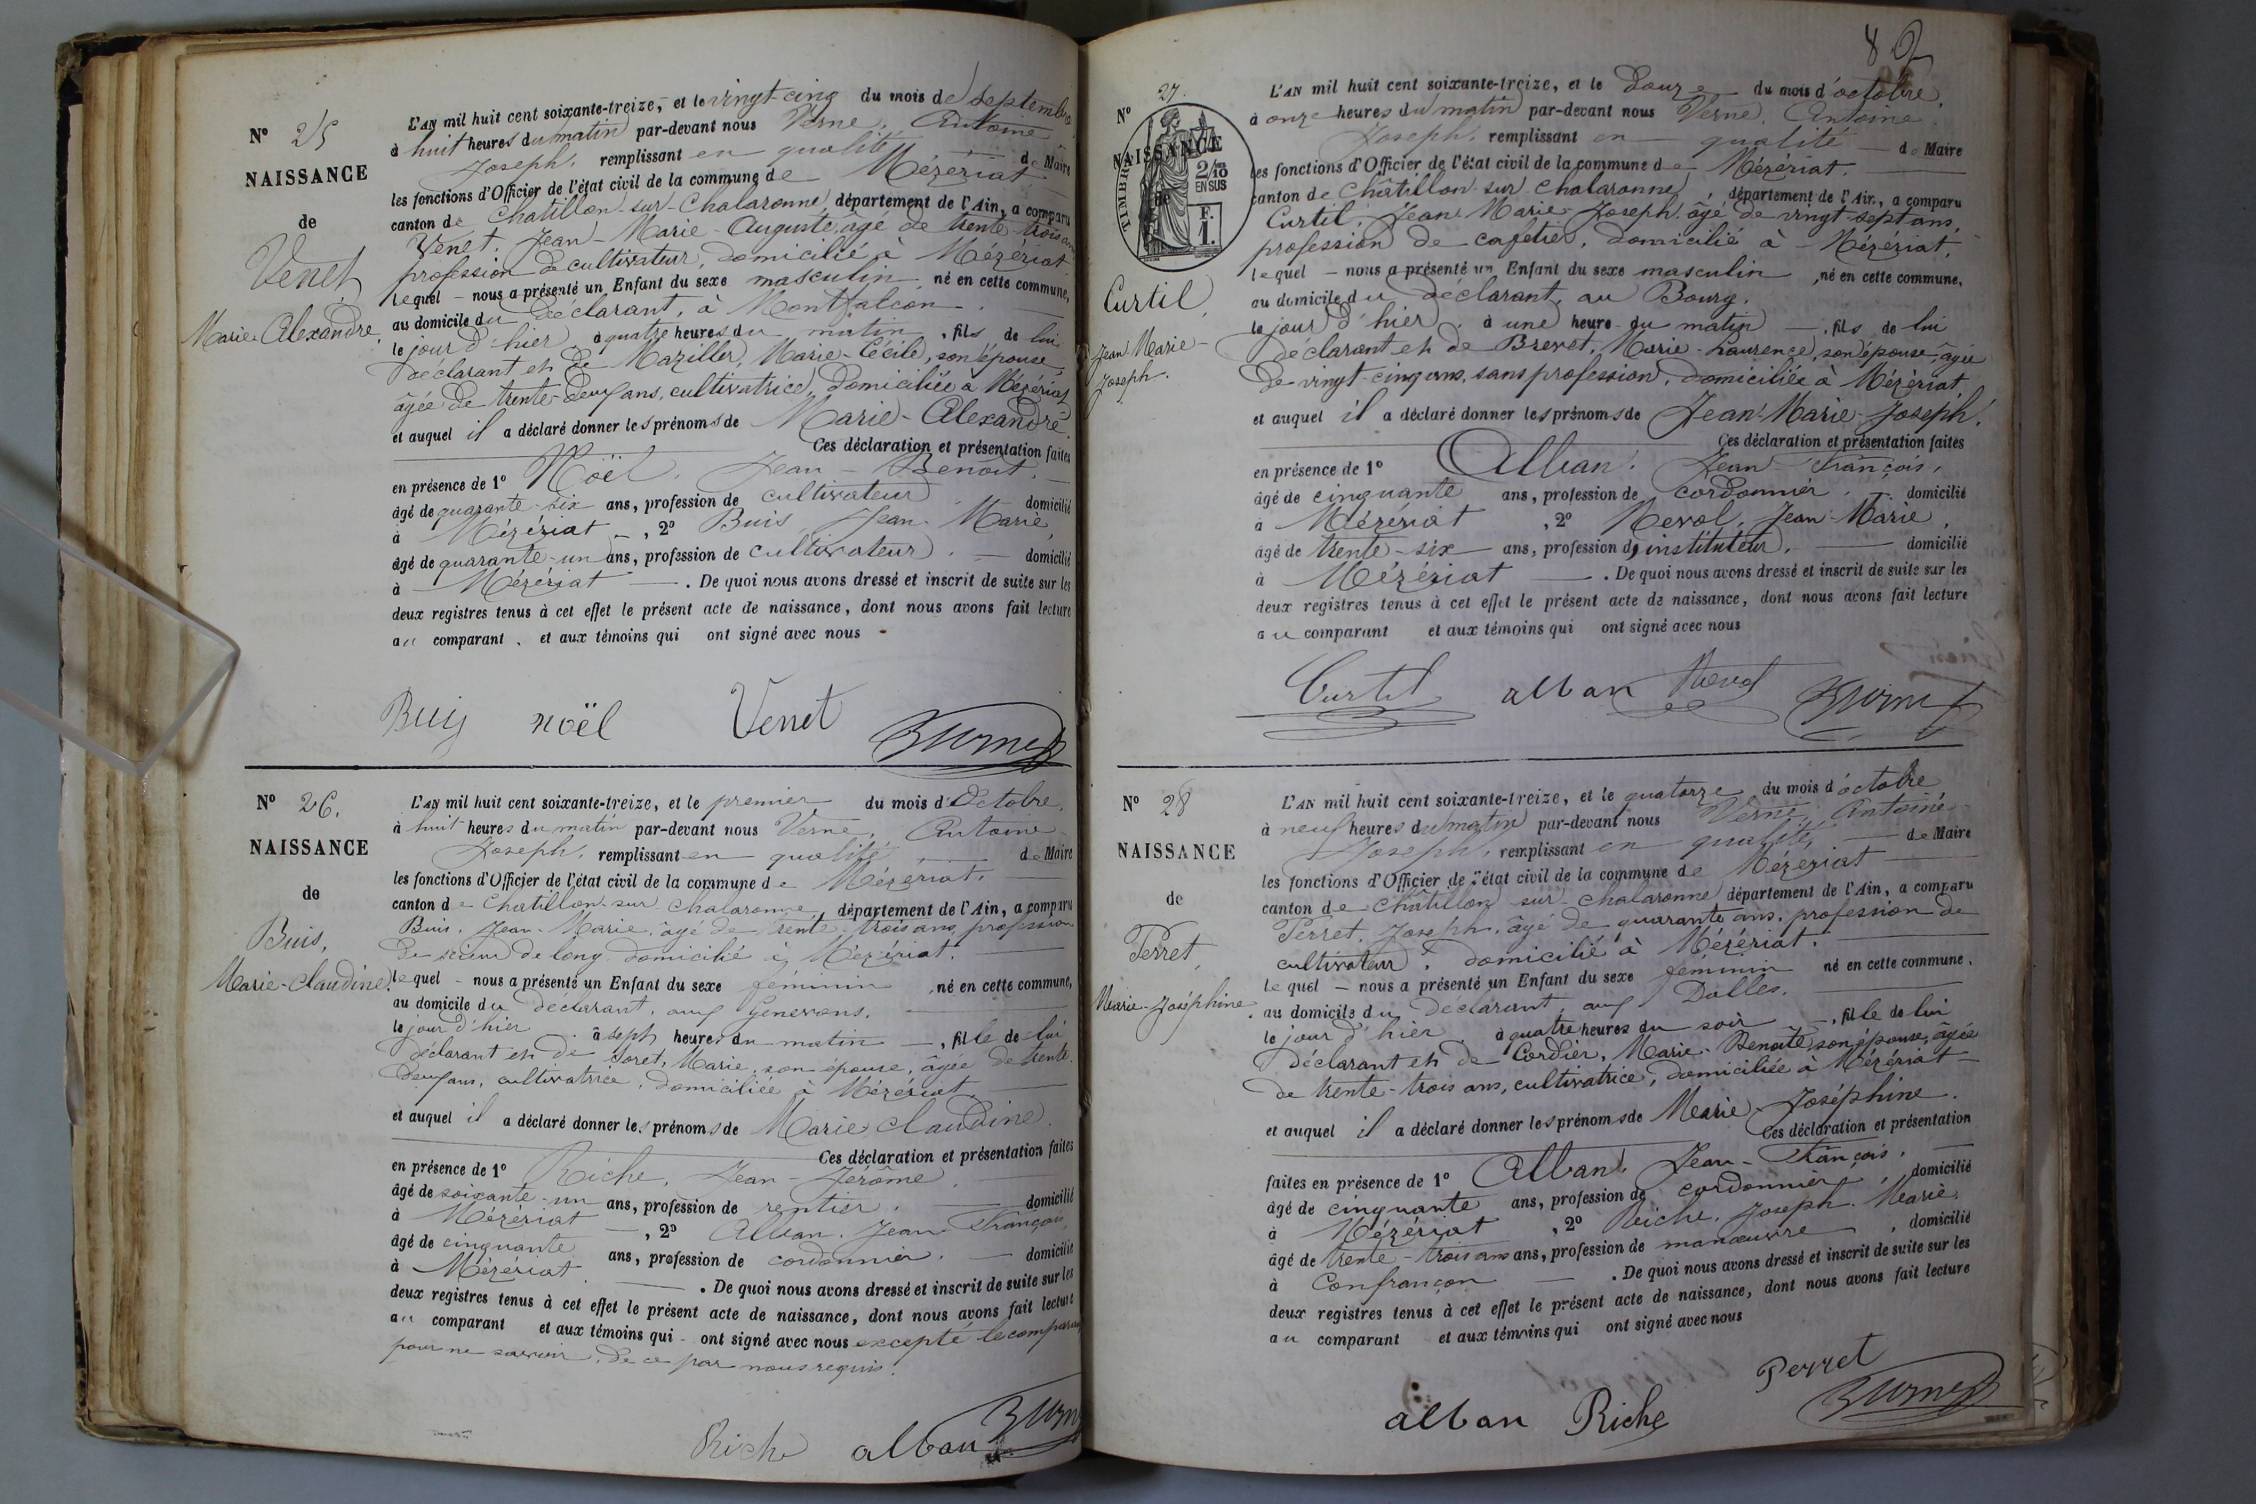 N° 25
NAISSANCE
de
Venet
Marie-Alexandre.
L'AN mil huit cent soixante-treize, et le vingt-cinq du mois de Septembre
à huit heures du matin par-devant nous Verne, Antoine
Joseph, remplissant en qualité de Maire
les fonctions d'Officier de l'état civil de la commune de Mézériat.
canton de Chatillon-sur-Chalaronne, département de l'Ain, a comparu
Venet, Jean-Marie-Auguste, âgé de trente-trois ans
profession de cultivateur, domicilié à Mézériat,
lequel – nous a présenté un Enfant du sexe masculin, né en cette commune,
au domicile du déclarant, à Montfalcon.
le jour d'hier, à quatre heures du matin, fils de lui
déclarant et de Maziller, Marie-Cécile, son épouse,
âgée de trente-deux ans, cultivatrice, domiciliée à Mézériat
et auquel il a déclaré donner les prénoms de Marie-Alexandre.
Ces déclaration et présentation faites
en présence de 1° Noël, Jean-Benoît,
âgé de quarante-six ans, profession de cultivateur, domicilié
à Mézériat, 2° Buis, Jean-Marie,
âgé de quarante-un ans, profession de cultivateur. domicilié
à Mézériat. De quoi nous avons dressé et inscrit de suite sur les
deux registres tenus à cet effet le présent acte de naissance, dont nous avons fait lecture
au comparant, et aux témoins qui ont signé avec nous
Buis noël Venet Verne
N° 26.
NAISSANCE
de
Buis,
Marie-Claudine.
L'AN mil huit cent soixante-treize, et le premier du mois d'Octobre,
à huit heures du matin par-devant nous Verne, Antoine
Joseph, remplissant en qualité de Maire
les fonctions d'Officier de l'état civil de la commune de Mézériat.
canton de Chatillon-sur-Chalaronne, département de l'Ain, a comparu
Buis, Jean-Marie, âgé de trente-trois ans, profession
de scieur de long, domicilié à Mézériat.
lequel – nous a présenté un Enfant du sexe féminin, né en cette commune,
au domicile du déclarant, aux Genevons.
le jour d'hier à sept heures du matin –, fille de lui
déclarant et de Soret, Marie, son épouse, âgée de trente-
deux ans, cultivatrice, domiciliée à Mézériat.
et auquel il a déclaré donner les prénoms de Marie Claudine.
Ces déclaration et présentation faites
en présence de 1° Riche, Jean-Jérôme,
âgé de soixante-un ans, profession de rentier. domicilié
à Mézériat, 2° Alban, Jean François,
âgé de cinquante ans, profession de cordonnier. domicilié
à Mézériat. De quoi nous avons dressé et inscrit de suite sur les
deux registres tenus à cet effet le présent acte de naissance, dont nous avons fait lecture
au comparant et aux témoins qui ont signé avec nous excepté le comparant
pour ne savoir, de ce par nous requis.
Riche alban Verne
82
N° 27.
NAISSANCE
de
TIMBRE
2/10
EN SUS
F.
1.
Curtil,
Jean Marie-
Joseph.
L'AN mil huit cent soixante-treize, et le Douze du mois d'octobre,
à onze heures du matin par-devant nous Verne, Antoine
Joseph, remplissant en qualité de Maire
les fonctions d'Officier de l'état civil de la commune de Mézériat.
canton de Chatillon-sur-Chalaronne, département de l'Ain, a comparu
Curtil, Jean-Marie-Joseph, âgé de vingt-sept ans,
profession de cafetier, domicilié à Mézériat,
lequel – nous a présenté un Enfant du sexe masculin, né en cette commune,
au domicile du déclarant, au Bourg.
le jour d'hier, à une heure du matin –, fils de lui
déclarant et de Brevet, Marie-Laurence, son épouse, âgée
de vingt-cinq ans, sans profession, domiciliée à Mézériat
et auquel il a déclaré donner les prénoms de Jean-Marie-Joseph.
Ces déclaration et présentation faites
en présence de 1° Alban, Jean-François,
âgé de cinquante ans, profession de cordonnier. domicilié
à Mézériat, 2° Revol, Jean-Marie,
âgé de trente-six ans, profession d'instituteur, domicilié
à Mézériat. De quoi nous avons dressé et inscrit de suite sur les
deux registres tenus à cet effet le présent acte de naissance, dont nous avons fait lecture
au comparant et aux témoins qui ont signé avec nous
Curtil alban Revol Verne
N° 28
NAISSANCE
de
Perret,
Marie-Joséphine.
L'AN mil huit cent soixante-treize, et le quatorze du mois d'octobre
à neuf heures du matin par-devant nous Verne, Antoine
Joseph, remplissant en qualité, de Maire
les fonctions d'Officier de l'état civil de la commune de Mézériat
canton de Châtillon-sur-Chalaronne, département de l'Ain, a comparu
Perret, Joseph, âgé de quarante ans, profession de
cultivateur, domicilié à Mézériat.
lequel – nous a présenté un Enfant du sexe féminin né en cette commune,
au domicile du déclarant aux Dolles.
le jour d'hier à quatre heures du soir –, fille de lui
déclarant et de Cordier, Marie-Benoîte, son épouse, âgée
de trente-trois ans, cultivatrice, domiciliée à Mézériat
et auquel il a déclaré donner les prénoms de Marie Joséphine.
Ces déclaration et présentation
faites en présence de 1° Alban, Jean-François,
âgé de cinquante ans, profession de cordonnier, domicilié
à Mézériat, 2° Riche, Joseph-Marie,
âgé de trente-trois ans ans, profession de manœuvre, domicilié
à Confrançon. De quoi nous avons dressé et inscrit de suite sur les
deux registres tenus à cet effet le présent acte de naissance, dont nous avons fait lecture
au comparant et aux témoins qui ont signé avec nous
Perret
alban Riche Verne